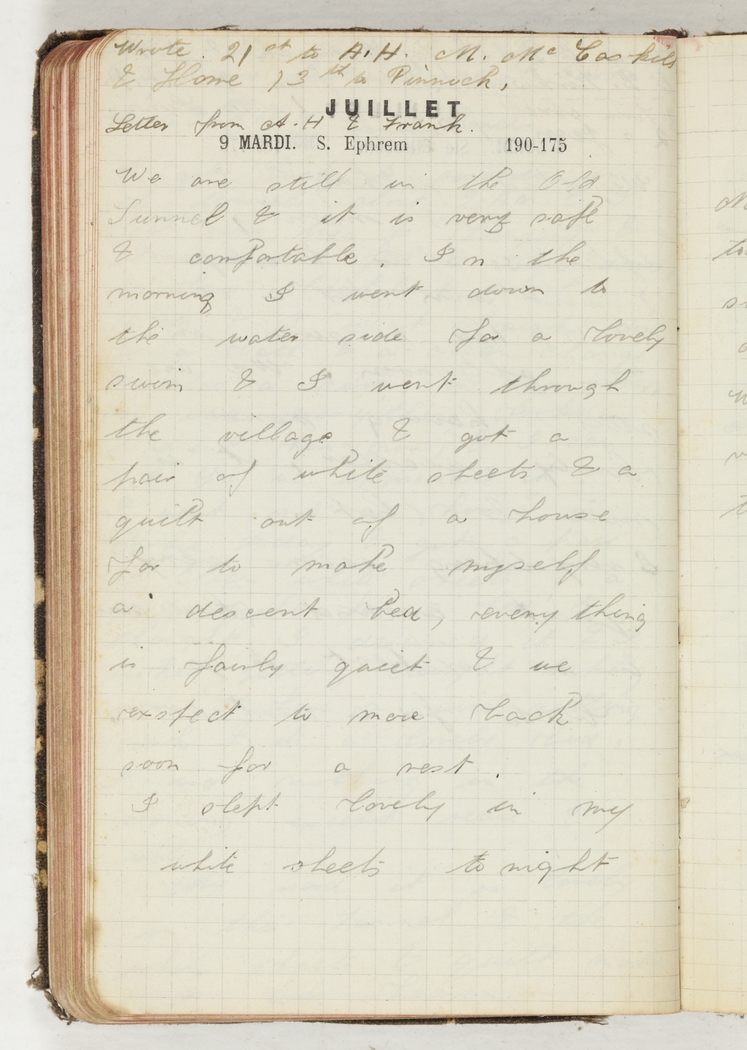 Wrote. 21st to A.H. M. Mc Caskill
& Home 13th to Pinnock,
JUILLET
Letter from A.H & Frank.
9 MARDI. S. Ephrem 190-175
We are still in the Old
Tunnel & it is very safe
& comfortable. In the
morning I went down to
the water side for a lovely
swim & I went through
the village & got a
pair of white sheets & a
quilt out of a house
for to make myself
a descent bed, every thing
is fairly quiet & we
expect to move back
soon for a rest.
I slept lovely in my
white sheets to night